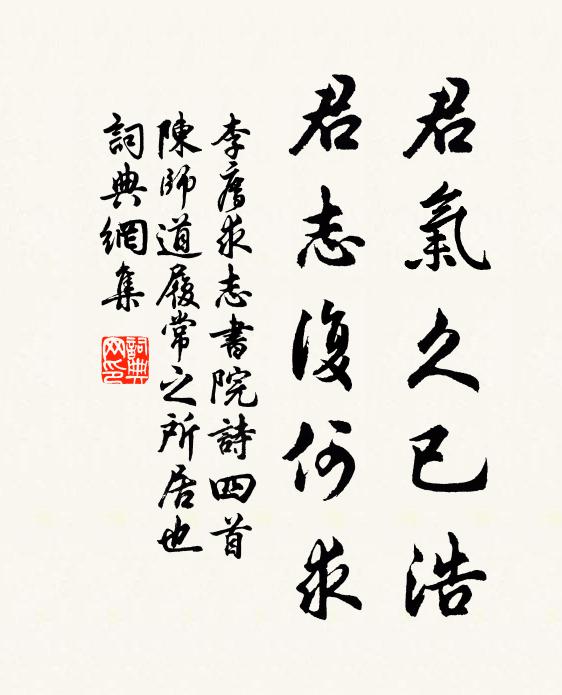 君氣久已浩
君志復何求
李廌求志書院詩四首
陳師道履常之所居也
詞典網集
詞典
网印